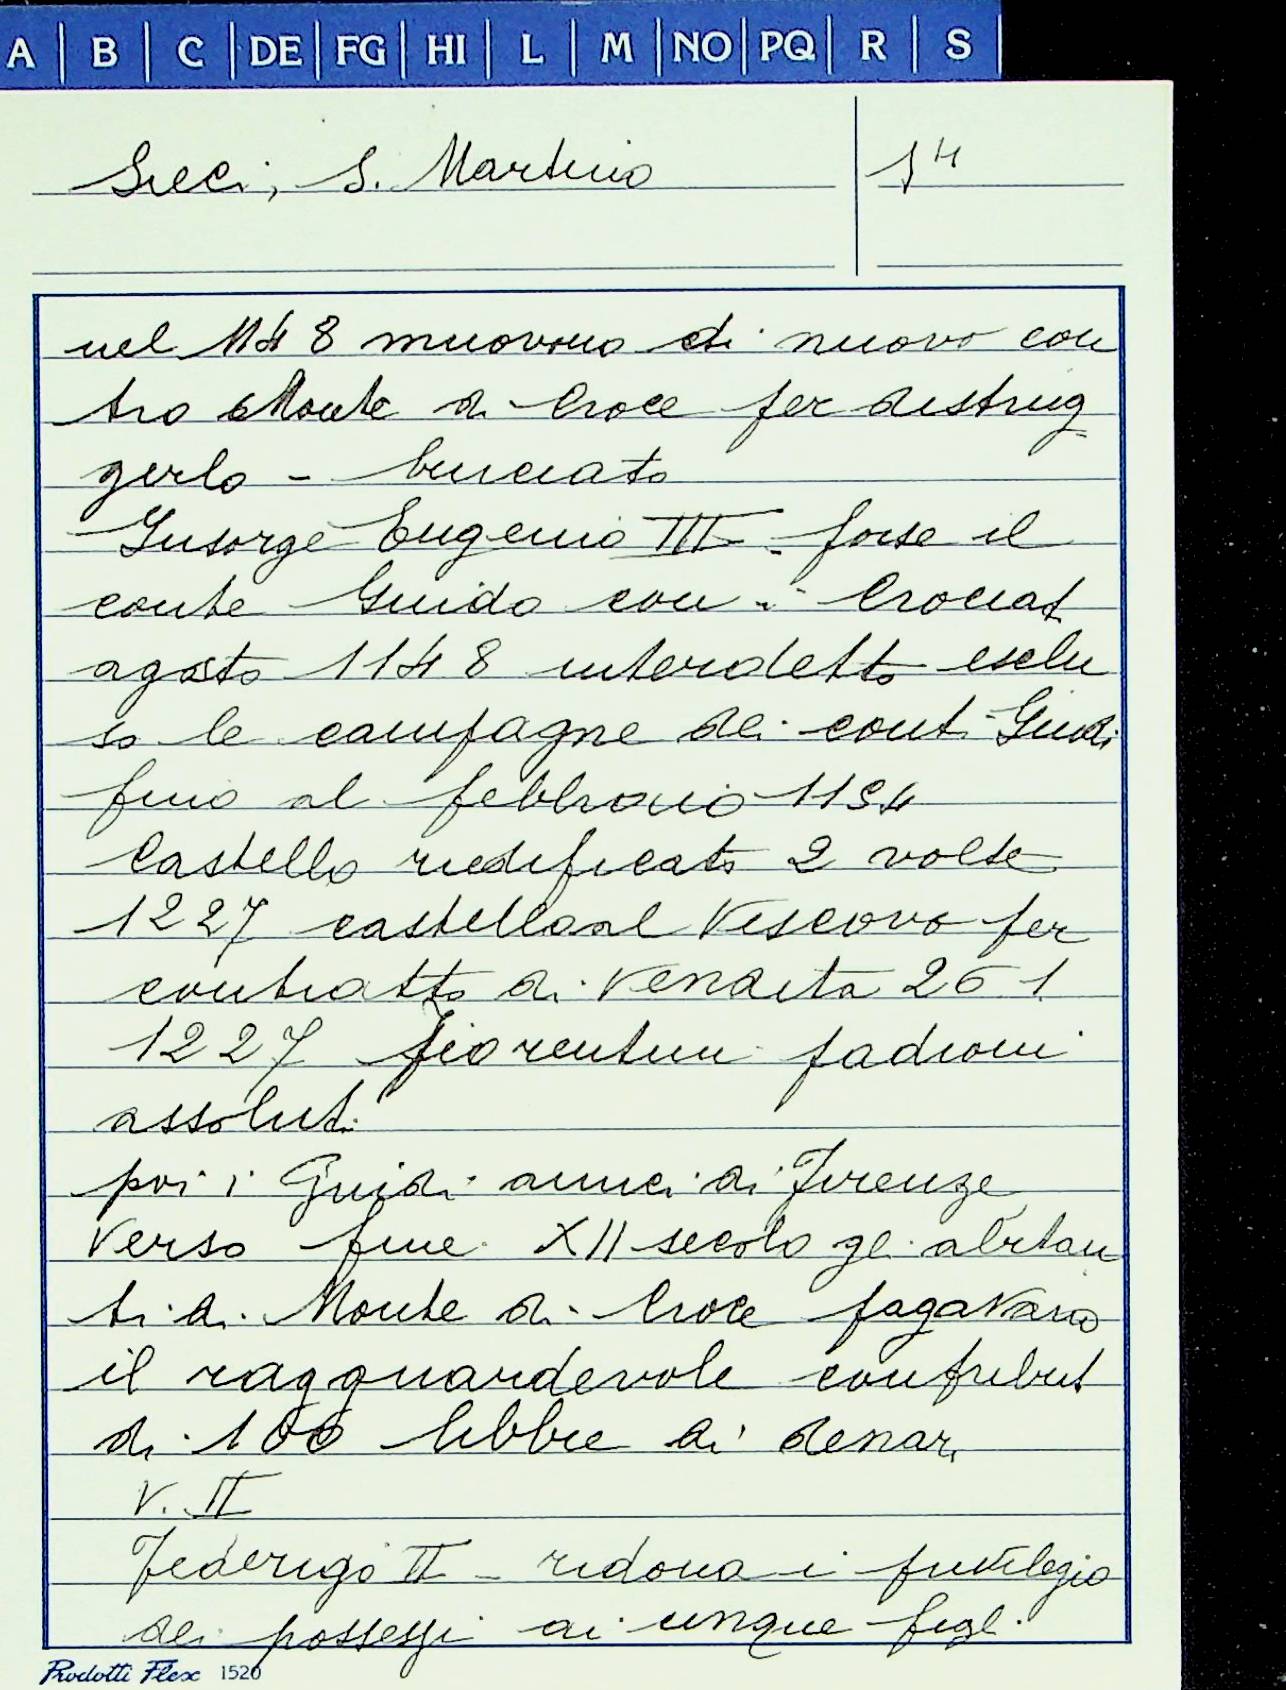 A B C DE FG HI L M NO PQ R S
Sieci, S. Martino
nel 1148 muovono di nuovo con
tro Monte di Croce per distrug
gerlo - bruciato
Insorge Eugenio III - forse il
conte Guido con i Crociat
agosto 1148 interdetto esclu
so le campagne dei conti Guidi
fino al febbraio 1154
Castello riedificato 2 volte
1227 castello al Vescovo per
contratto di vendita 26 1
1227 fiorentini padroni
assoluti
poi i Guidi amici di Firenze
Verso fine XII secolo gli abitan
ti di Monte di Croce pagavano
il ragguardevole contribut
di 100 libbre di denari
V. II
Federigo II - ridona i privilegio
dei possessi ai cinque figli
Prodotti Flex 1520